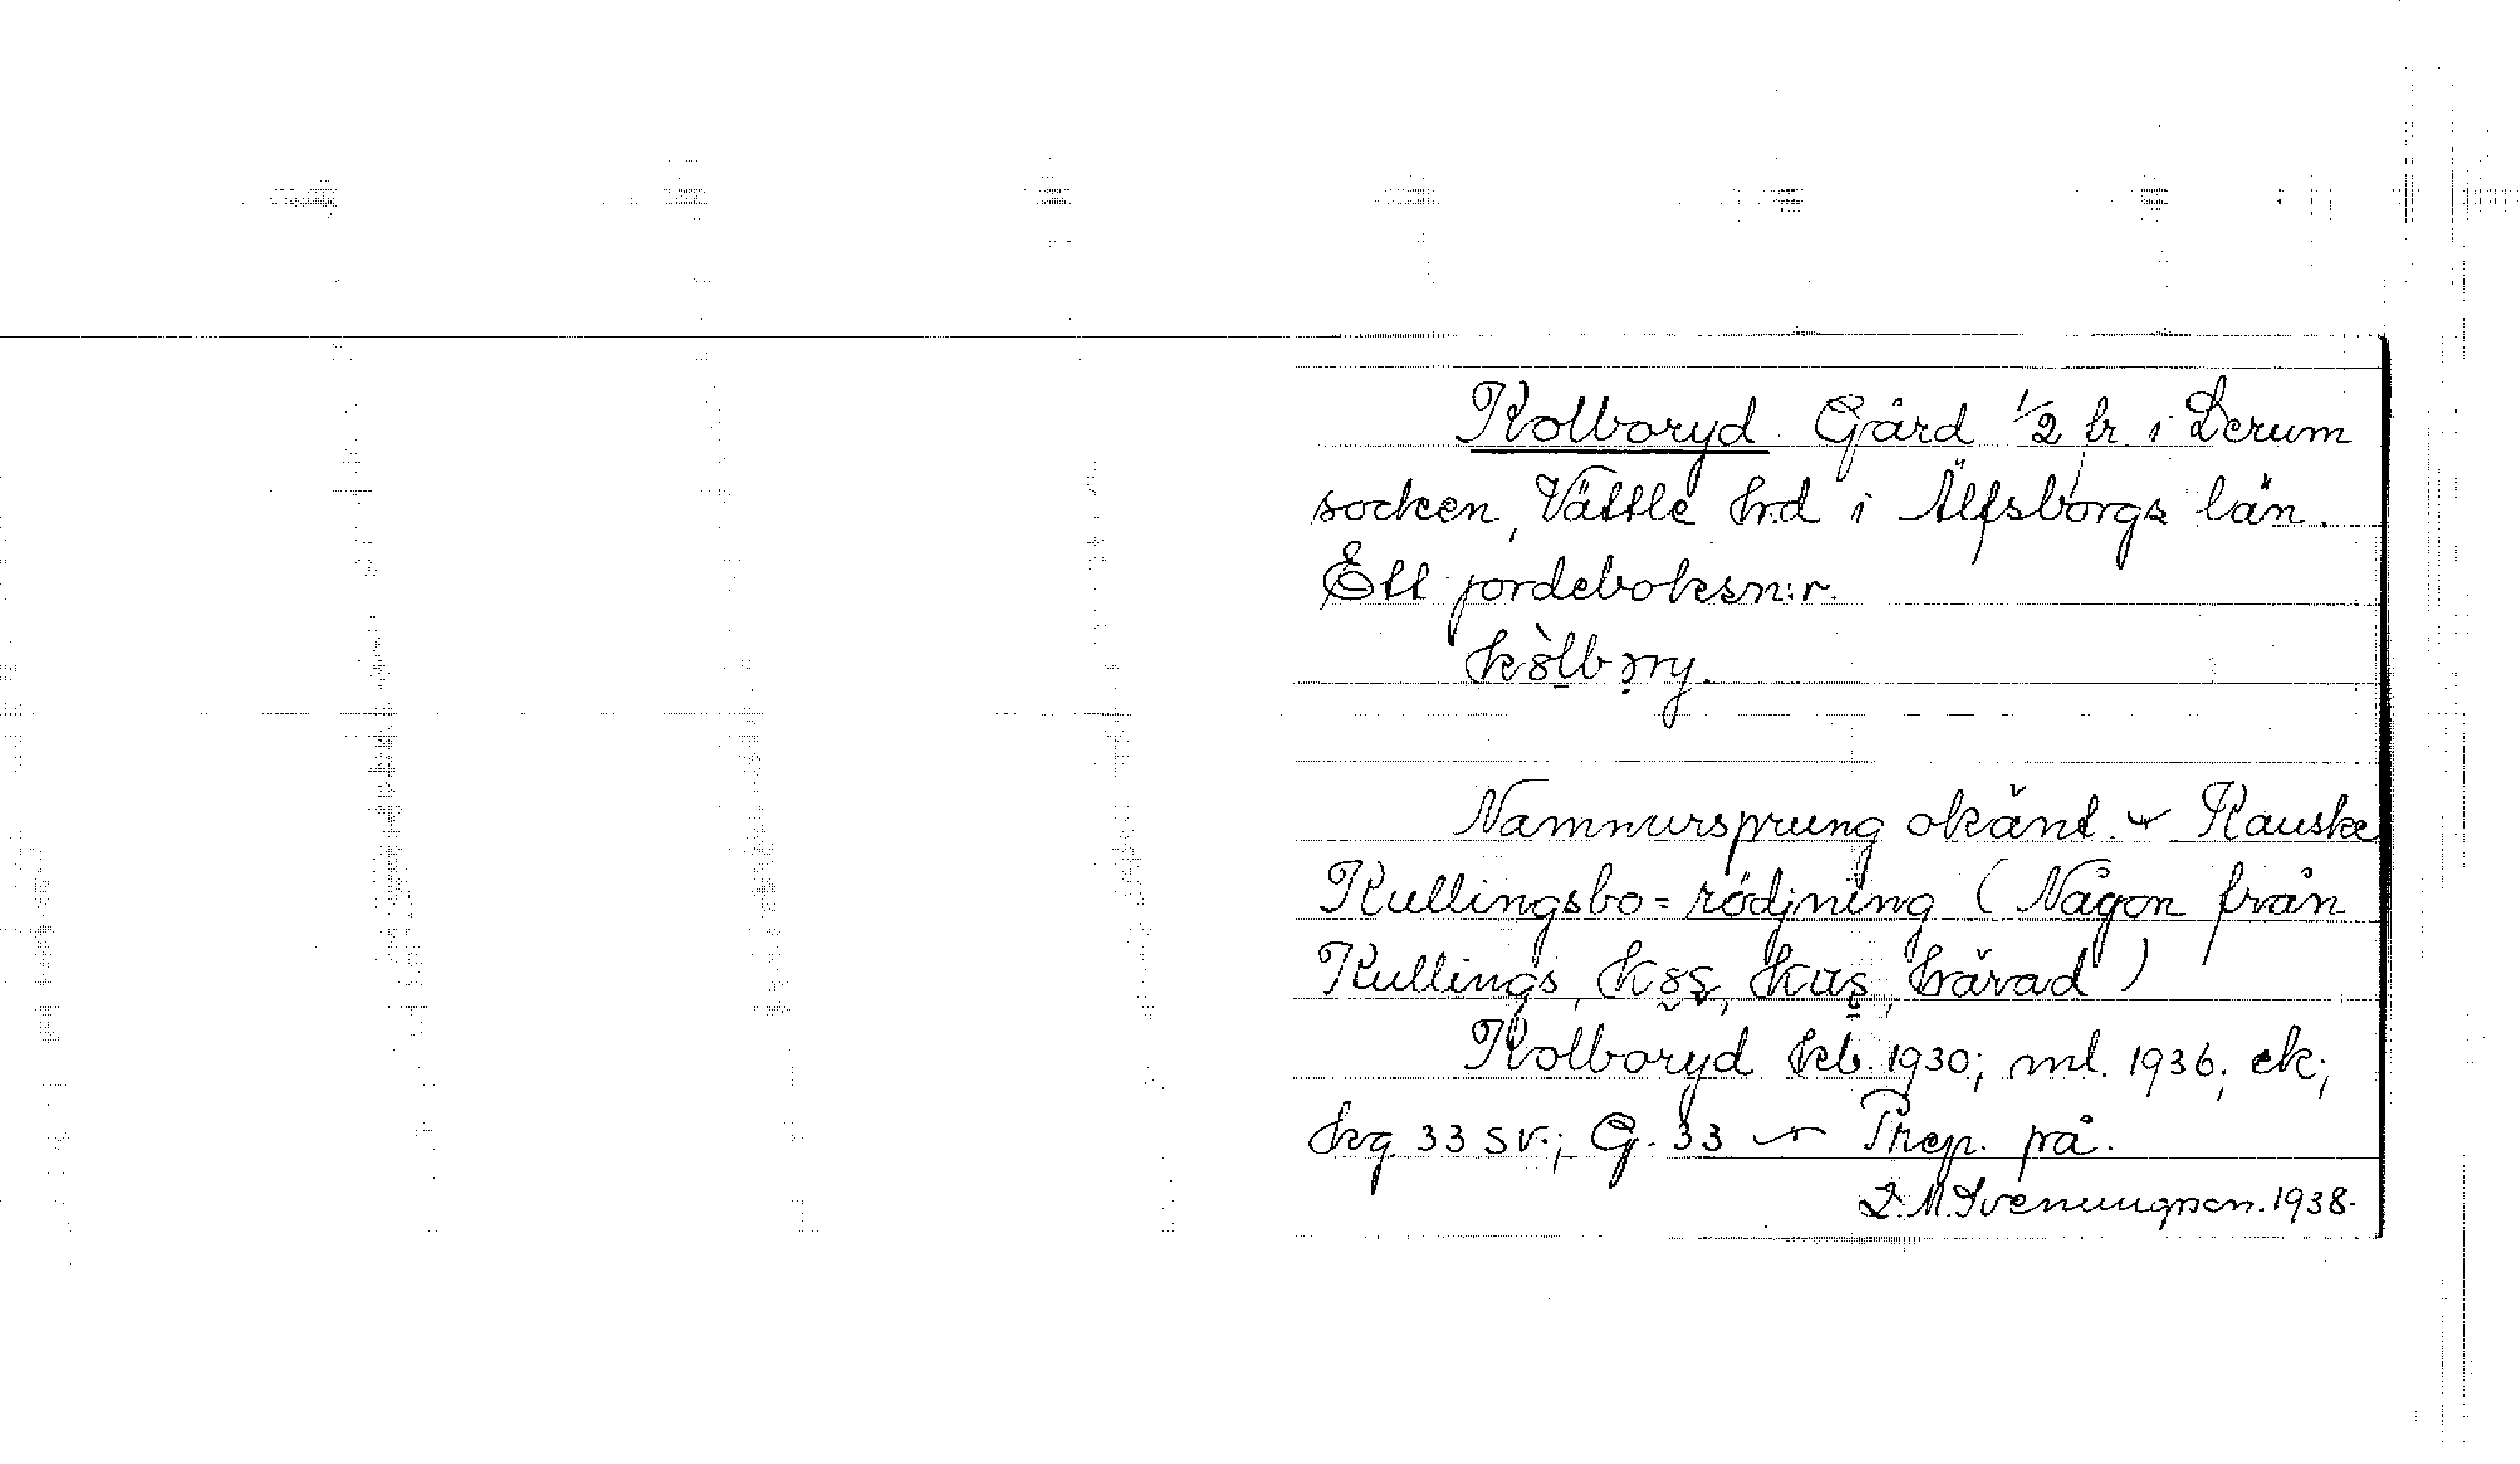 Kolboryd. Gård 1/2 h. i Lerum
socken, Vättle h:d i Älfsborgs län.
Ett jordeboksn:r.
kòlbɔry.
Namnursprung okänt. Kanske
Kullingsbo-rödjning (Någon från
Kullings, häräd)
Kolboryd kb. 1930; ml. 1936; ek;
hg 33 sv.; G. 33 Prep. på.
L. M. Svenungson. 1938.